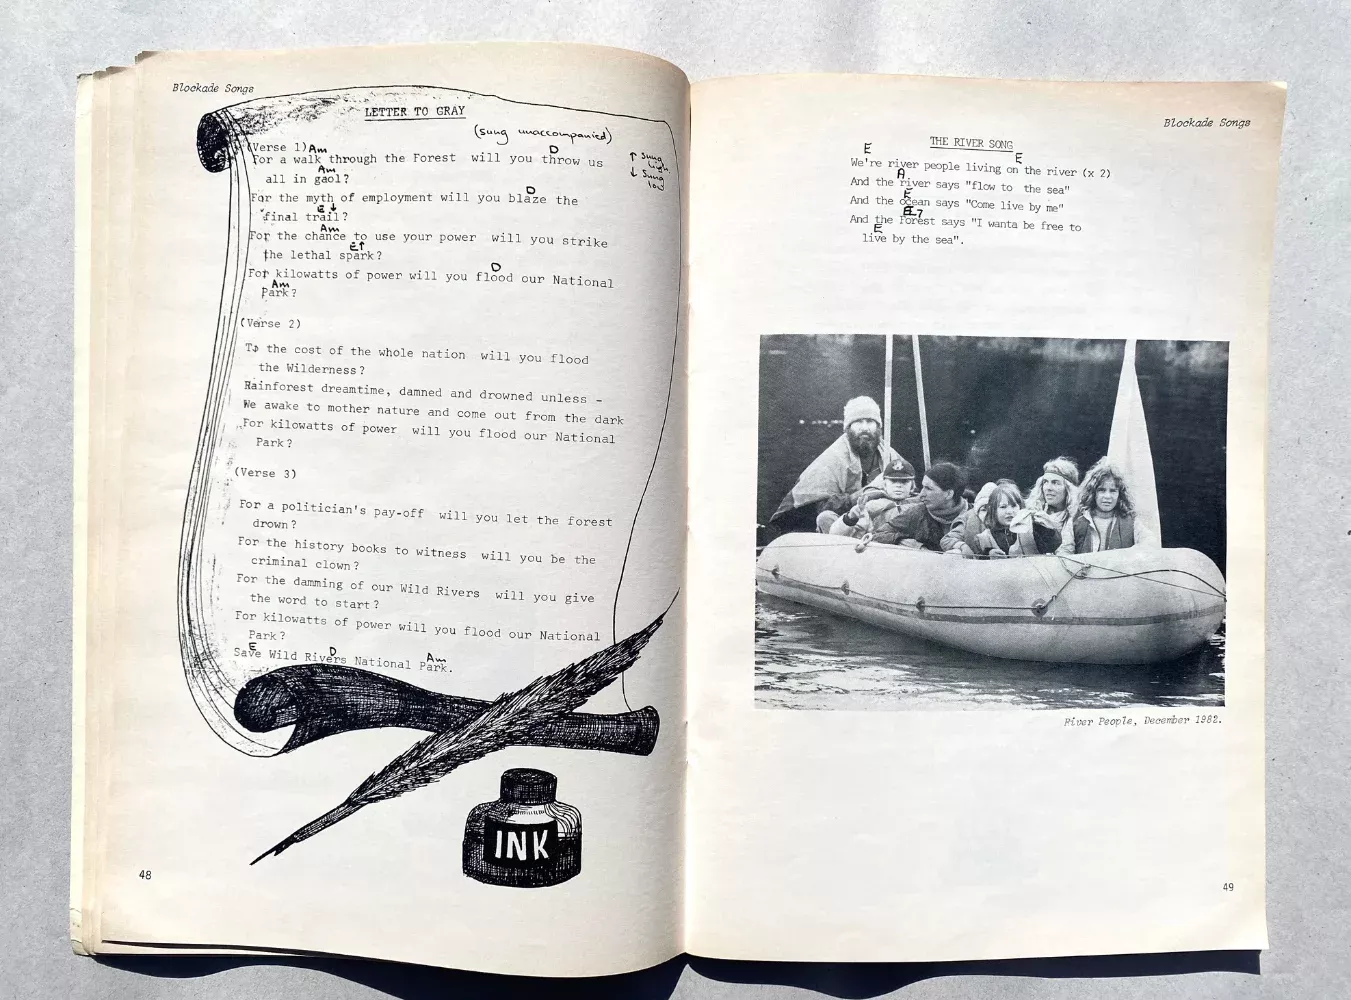 Blockade Songs
LETTER TO GRAY
(sung unaccompanied)
(Verse 1) Am D
For a walk through the Forest will you throw us
↑ sung high.
↓ sung low
Am
all in gaol?
D
For the myth of employment will you blaze the
E ↓
final trail?
Am
For the chance to use your power will you strike
E↑
the lethal spark?
D
For kilowatts of power will you flood our National
Am
Park?
(Verse 2)
To the cost of the whole nation will you flood
the Wilderness?
Rainforest dreamtime, damned and drowned unless -
We awake to mother nature and come out from the dark
For kilowatts of power will you flood our National
Park?
(Verse 3)
For a politician's pay-off will you let the forest
drown?
For the history books to witness will you be the
criminal clown?
For the damming of our Wild Rivers will you give
the word to start?
For kilowatts of power will you flood our National
Park?
E D Am
Save Wild Rivers National Park.
INK
48
Blockade Songs
THE RIVER SONG
E E
We're river people living on the river (x 2)
A
And the river says "flow to the sea"
E
And the ocean says "Come live by me"
E7
And the Forest says "I wanta be free to
E
live by the sea".
River People, December 1982.
49